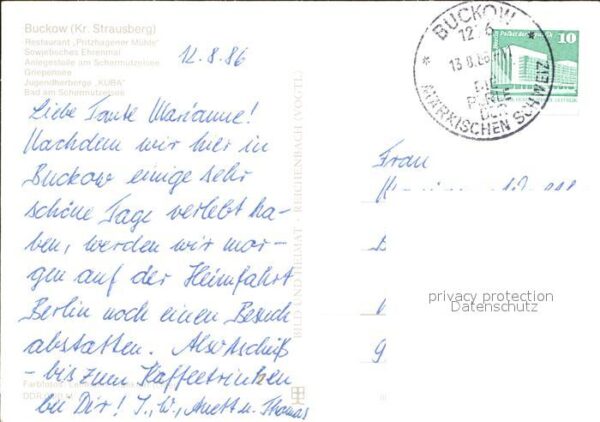 Buckow (Kr. Strausberg)
Restaurant „Pritzhagener Mühle"
Sowjetisches Ehrenmal
Anlegestelle am Schermützelsee
Griepensee
Jugendherberge „KUBA"
Bad am Schermützelsee
12.8.86
Liebe Tante Marianne!
Nachdem wir hier in
Buckow einige sehr
schöne Tage verlebt ha-
ben, werden wir mor-
gen auf der Heimfahrt
Berlin noch einen Besuch
abstatten. Also tschüß
- bis zum Kaffeetrinken
bei Dir! I., W., Anett u. Thomas
BILD UND HEIMAT REICHENBACH (VOGTL)
BUCKOW
12.6
13.8.86
DIE
PERLE
DER
MÄRKISCHEN SCHWEIZ
10
Frau
privacy protection
Datenschutz